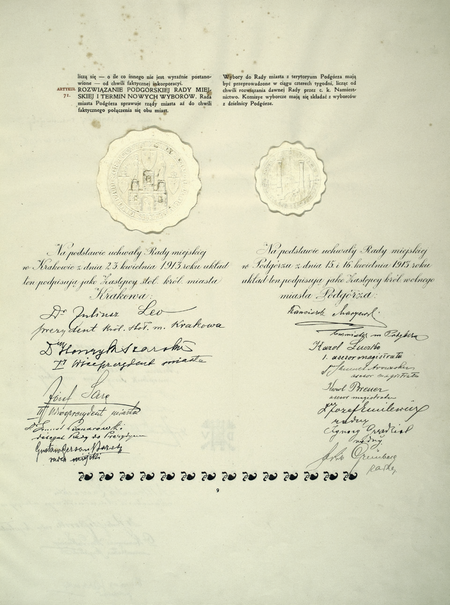 liczą się — o ile co innego nie jest wyraźnie postano-
wione — od chwili faktycznej inkorporacyi.
ARTYKUŁ
71.
ROZWIĄZANIE PODGÓRSKIEJ RADY MIEJ-
SKIEJ I TERMIN NOWYCH WYBORÓW. Rada
miasta Podgórza sprawuje rządy miasta aż do chwili
faktycznego połączenia się obu miast.
Wybory do Rady miasta z terytoryum Podgórza mają
być przeprowadzone w ciągu czterech tygodni, licząc od
chwili rozwiązania dawnej Rady przez c. k. Namiest-
nictwo. Komisye wyborcze mają się składać z wyborców
z dzielnicy Podgórze.
Na podstawie uchwały Rady miejskiej
w Krakowie z dnia 23 kwietnia 1913 roku układ
ten podpisują jako Zastępcy stoł. król. miasta
Krakowa:
Dr Juliusz Leo
prezydent król. stoł. m. Krakowa
Dr Henryk Szarski
I wiceprezydent miasta
Józef Sare
III Wiceprezydent miasta
Na podstawie uchwały Rady miejskiej
w Podgórzu z dnia 15 i 16 kwietnia 1913 roku
układ ten podpisują jako Zastępcy król. wolnego
miasta Podgórza:
Franciszek Maryewski
burmistrz m. Podgórza
Karol
I asesor magistratu
asesor magistratu
asesor magistratu
radny
radny
radny
9